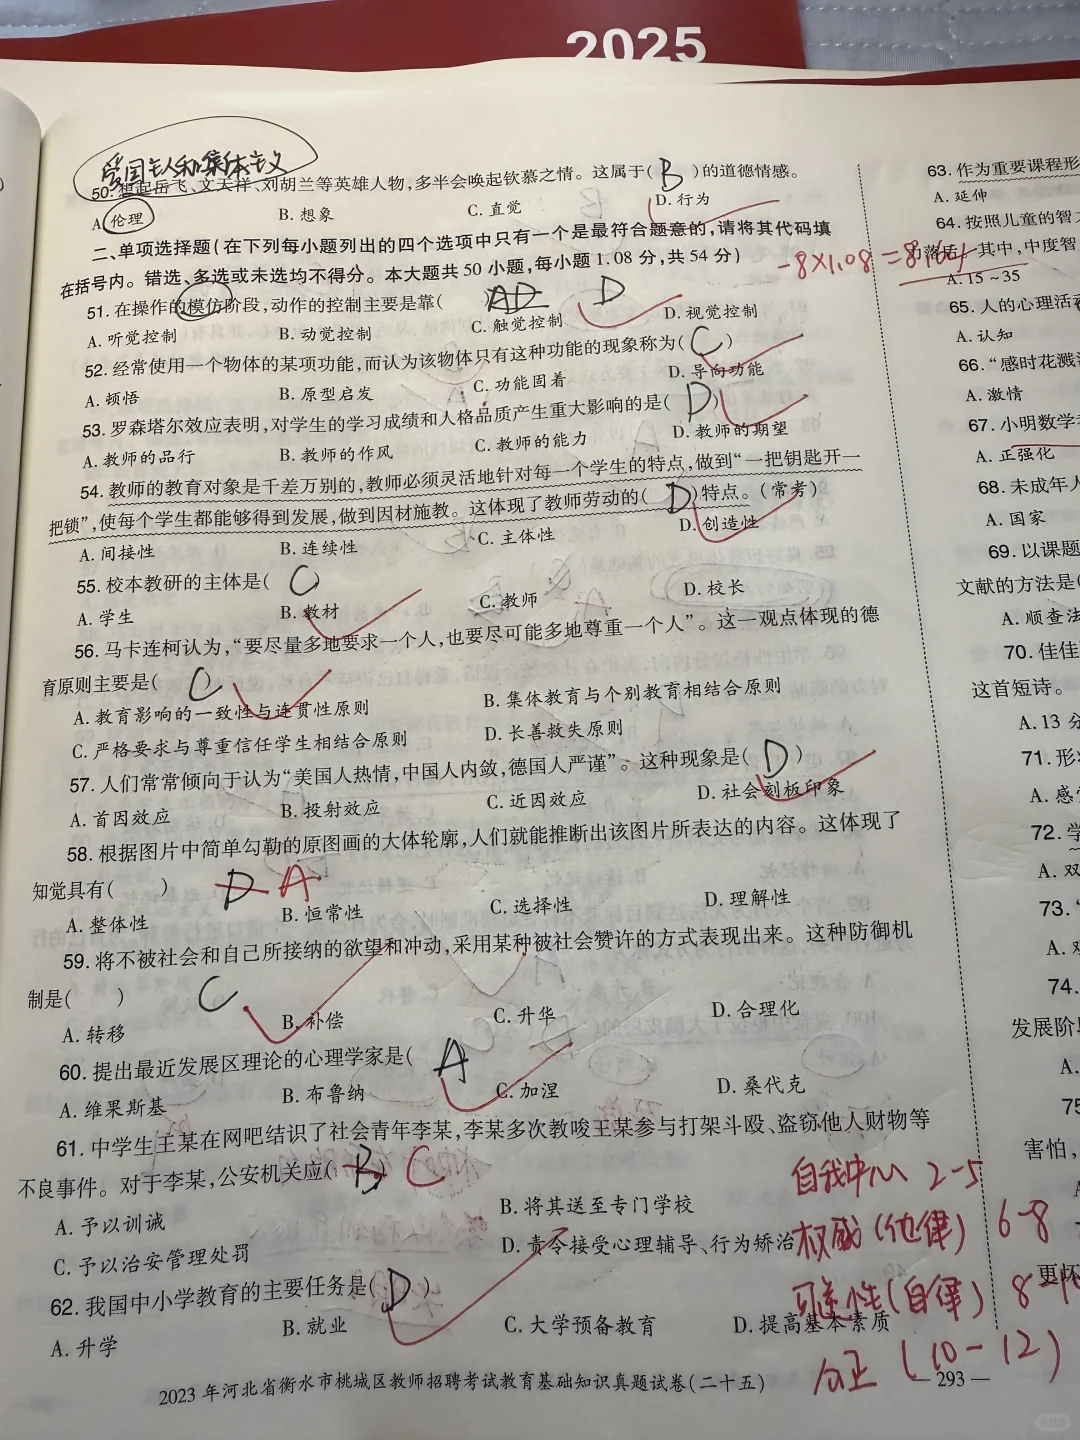 2025
爱国主义和集体主义
50. 想起岳飞、文天祥、刘胡兰等英雄人物,多半会唤起钦慕之情。这属于( B )的道德情感。
A 伦理 B. 想象 C. 直觉 D. 行为
二、单项选择题(在下列每小题列出的四个选项中只有一个是最符合题意的,请将其代码填
在括号内。错选、多选或未选均不得分。本大题共 50 小题,每小题 1.08 分,共 54 分)
-8×1.08=8.64
51. 在操作的模仿阶段,动作的控制主要是靠( AD D
A. 听觉控制 B. 动觉控制 C. 触觉控制 D. 视觉控制
52. 经常使用一个物体的某项功能,而认为该物体只有这种功能的现象称为( C )
A. 顿悟 B. 原型启发 C. 功能固着 D. 导向功能
53. 罗森塔尔效应表明,对学生的学习成绩和人格品质产生重大影响的是( D )
A. 教师的品行 B. 教师的作风 C. 教师的能力 D. 教师的期望
54. 教师的教育对象是千差万别的,教师必须灵活地针对每一个学生的特点,做到“一把钥匙开一
把锁”,使每个学生都能够得到发展,做到因材施教。这体现了教师劳动的( D )特点。(常考)
A. 间接性 B. 连续性 C. 主体性 D. 创造性
55. 校本教研的主体是( C
A. 学生 B. 教材 C. 教师 D. 校长
56. 马卡连柯认为,“要尽量多地要求一个人,也要尽可能多地尊重一个人”。这一观点体现的德
育原则主要是( C )
A. 教育影响的一致性与连贯性原则 B. 集体教育与个别教育相结合原则
C. 严格要求与尊重信任学生相结合原则 D. 长善救失原则
57. 人们常常倾向于认为“美国人热情,中国人内敛,德国人严谨”。这种现象是( D )
A. 首因效应 B. 投射效应 C. 近因效应 D. 社会刻板印象
58. 根据图片中简单勾勒的原图画的大体轮廓,人们就能推断出该图片所表达的内容。这体现了
知觉具有( ) D A
A. 整体性 B. 恒常性 C. 选择性 D. 理解性
59. 将不被社会和自己所接纳的欲望和冲动,采用某种被社会赞许的方式表现出来。这种防御机
制是( ) C
A. 转移 B. 补偿 C. 升华 D. 合理化
60. 提出最近发展区理论的心理学家是( A
A. 维果斯基 B. 布鲁纳 C. 加涅 D. 桑代克
61. 中学生王某在网吧结识了社会青年李某,李某多次教唆王某参与打架斗殴、盗窃他人财物等
不良事件。对于李某,公安机关应( B ) C
A. 予以训诫 B. 将其送至专门学校
C. 予以治安管理处罚 D. 责令接受心理辅导、行为矫治
62. 我国中小学教育的主要任务是( D )
A. 升学 B. 就业 C. 大学预备教育 D. 提高基本素质
自我中心 2-5
权威(他律) 6-8
可逆性(自律) 8-10
公正 (10-12)
2023 年河北省衡水市桃城区教师招聘考试教育基础知识真题试卷(二十五)
— 293 —
63. 作为重要课程形
A. 延伸
64. 按照儿童的智力
落后 其中,中度智
A. 15~35
65. 人的心理活
A. 认知
66. “感时花溅
A. 激情
67. 小明数学
A. 正强化
68. 未成年人
A. 国家
69. 以课题
文献的方法是(
A. 顺查法
70. 佳佳
这首短诗。
A. 13 分
71. 形
A. 感
72. 学
A. 双
73. “
A.
74.
发展阶
A.
75
害怕,
更怀